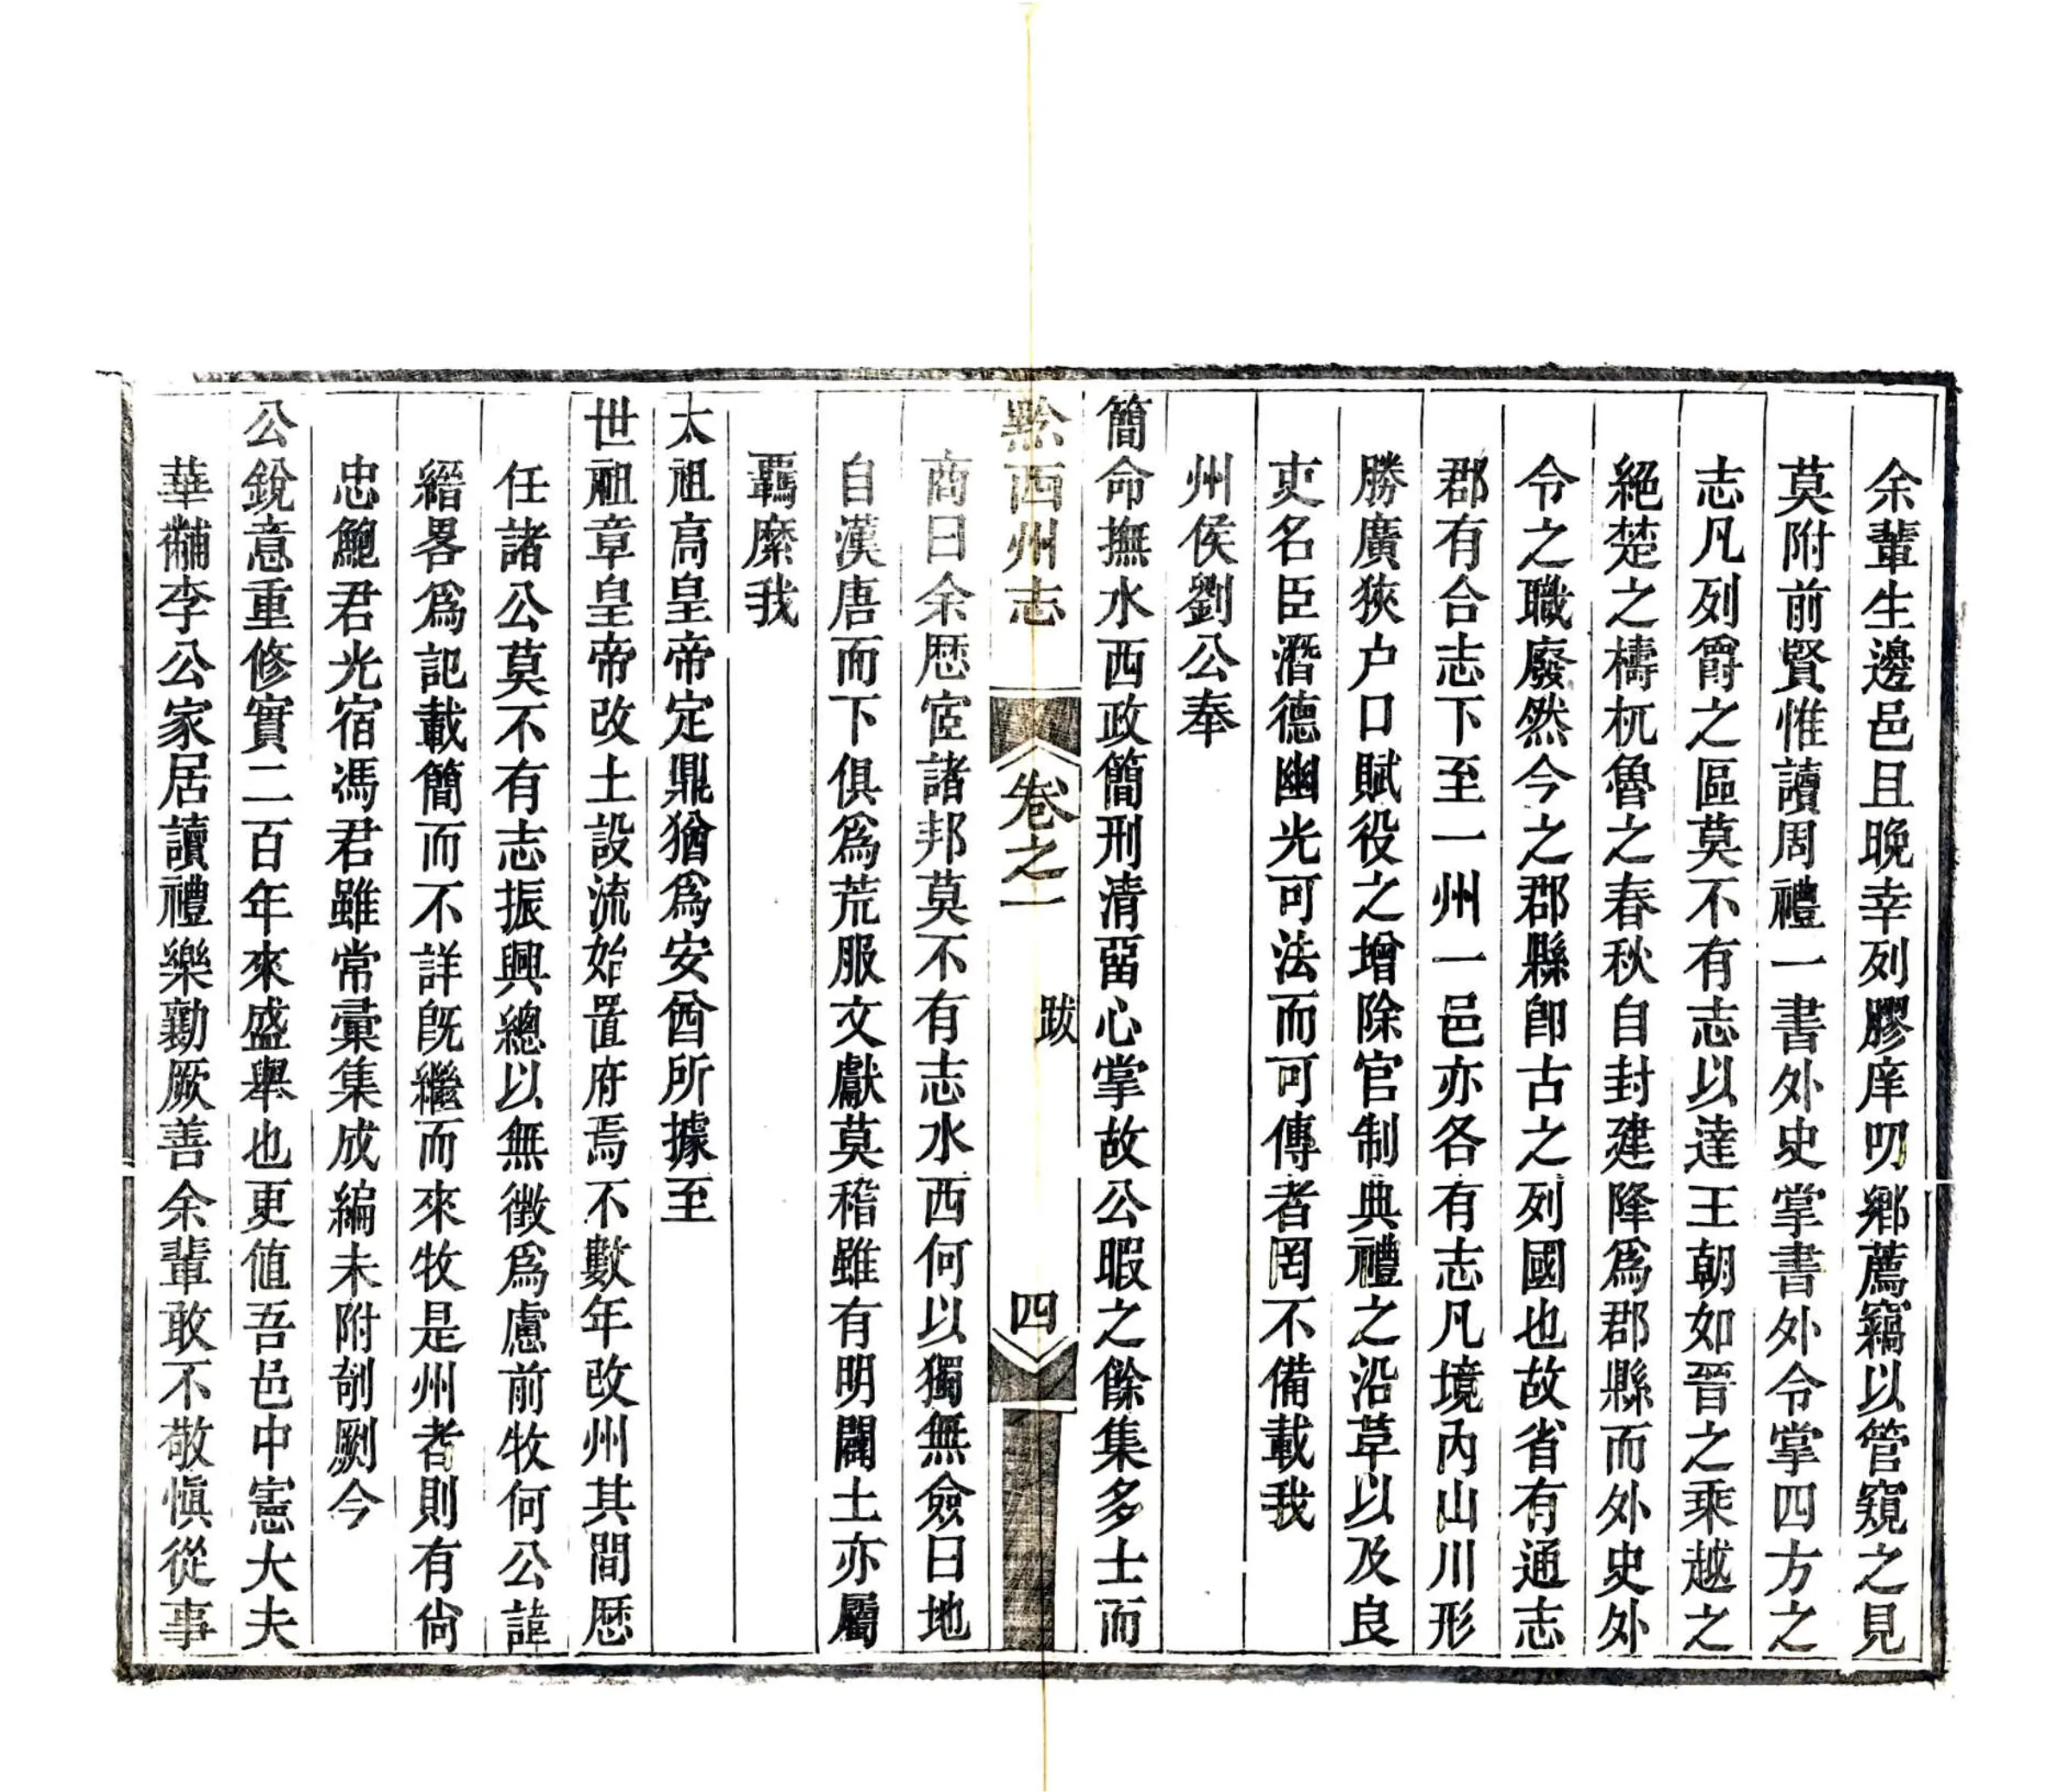 余輩生邊邑且晩幸列膠庠叨鄉薦竊以管窺之見
莫附前賢惟讀周禮一書外史掌書外令掌四方之
志凡列爵之區莫不有志以達王朝如晉之乘越之
絕楚之檮杌魯之春秋自封建降爲郡縣而外史外
令之職廢然今之郡縣卽古之列國也故省有通志
郡有合志下至一州一邑亦各有志凡境內山川形
勝廣狹户口賦役之增除官制典禮之沿革以及良
吏名臣潛德幽光可法而可傳者罔不備載我
州侯劉公奉
簡命撫水西政簡刑清畱心掌故公暇之餘集多士而
黔西州志
卷之一
跋
四
商曰余歷宦諸邦莫不有志水西何以獨無僉曰地
自漢唐而下俱爲荒服文獻莫稽雖有明闢土亦屬
羈縻我
太祖高皇帝定鼎猶爲安酋所據至
世祖章皇帝改土設流始置府焉不數年改州其間歷
任諸公莫不有志振興總以無徵爲慮前牧何公諱
縉畧爲記載簡而不詳旣繼而來牧是州者則有尙
忠鮑君光宿馮君雖常彙集成編未附剞劂今
公銳意重修實二百年來盛舉也更值吾邑中憲大夫
華黼李公家居讀禮樂勷厥善余輩敢不敬愼從事